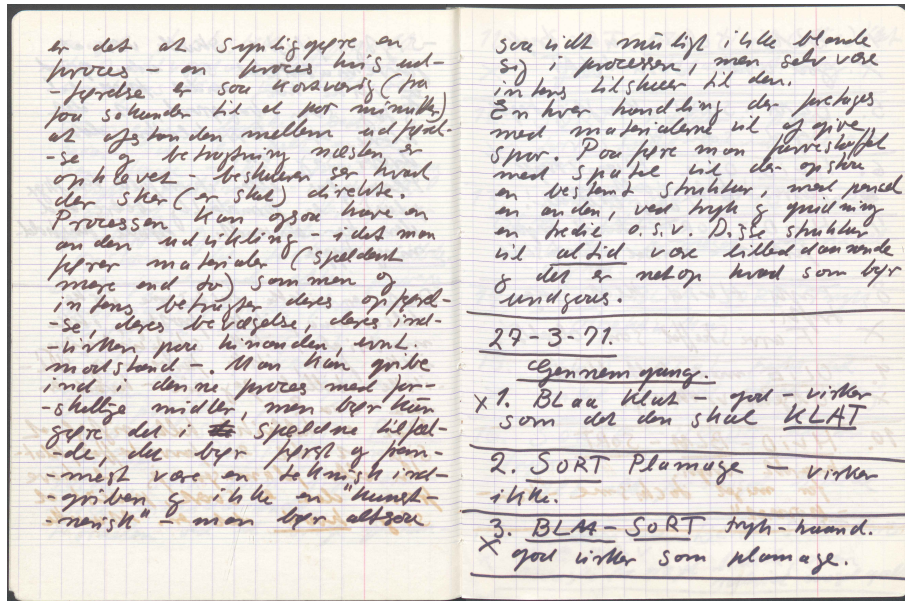 er det at synliggøre en
proces – en proces hvis ud-
-førelse er saa kortvarig (fra
faa sekunder til et par minutter)
at afstanden mellem udførel-
-se og betragtning næsten er
ophævet – beskueren ser hvad
der sker (er sket) direkte.
Processen kan ogsaa have en
anden udvikling – idet man
fører materialer (sjældent
mere end to) sammen og
intens betragter deres opførel-
-se, deres bevægelse, deres ind-
-virken paa hinanden, evnt.
modstand –. Man kan gribe
ind i denne proces med for-
-skellige midler, men bør kun
gøre det i sjældne tilfæl-
-de, det bør først og frem-
-mest være en teknisk ind-
-griben og ikke en "kunst-
-nerisk" – man bør altsaa
saa lidt muligt ikke blande
sig i processen, men selv være
intens tilskuer til den.
Enhver handling der foretages
med materialerne vil afgive
spor. Paaføre man farvestoffet
med spatel vil der opstaa
en bestemt struktur, med pensel
en anden, ved tryk og gnidning
en tredie o.s.v. Disse struktur
vil altid være billeddannende
og det er netop hvad som bør
undgaas.
27-3-71.
Gennemgang.
x 1. BLAA Klat – god – virker
som det den skal KLAT
2. SORT Plamage – virker
ikke.
3. BLAA – SORT tryk-haand.
x god virker som plamage.